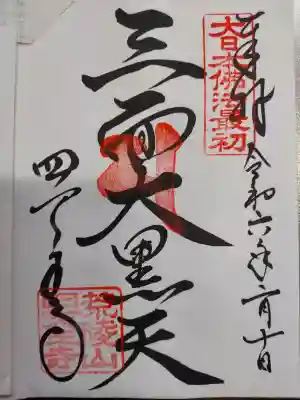 奉拝
大日本佛法最初
令和六年二月十日
三面大黒天
四天王寺
荒陵山
四天王寺